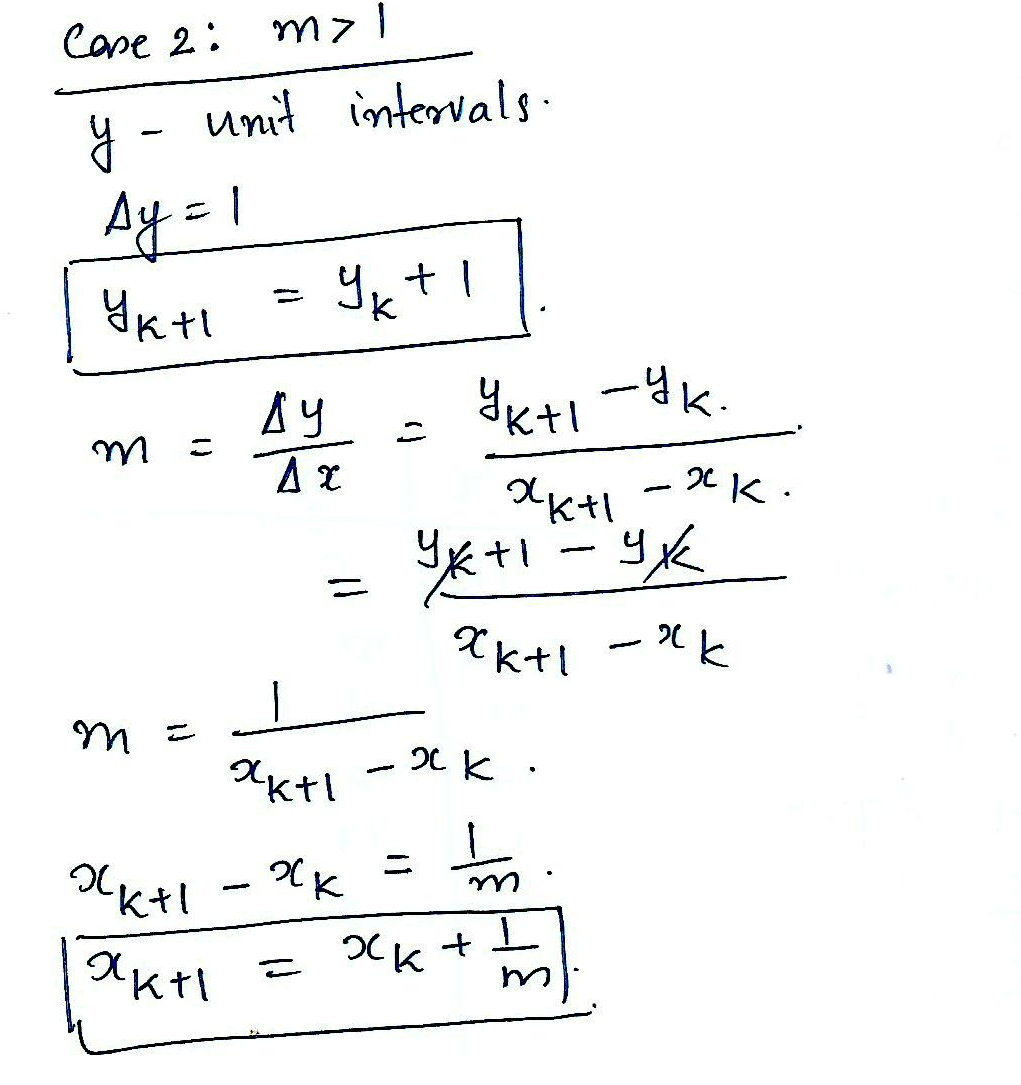 Case 2: m > 1
y - unit intervals.
Δy = 1
y_{k+1} = y_k + 1.
m = Δy/Δx = (y_{k+1} - y_k.)/(x_{k+1} - x_k.)
= (y_k + 1 - y_k)/(x_{k+1} - x_k)
m = 1/(x_{k+1} - x_k).
x_{k+1} - x_k = 1/m.
x_{k+1} = x_k + 1/m.